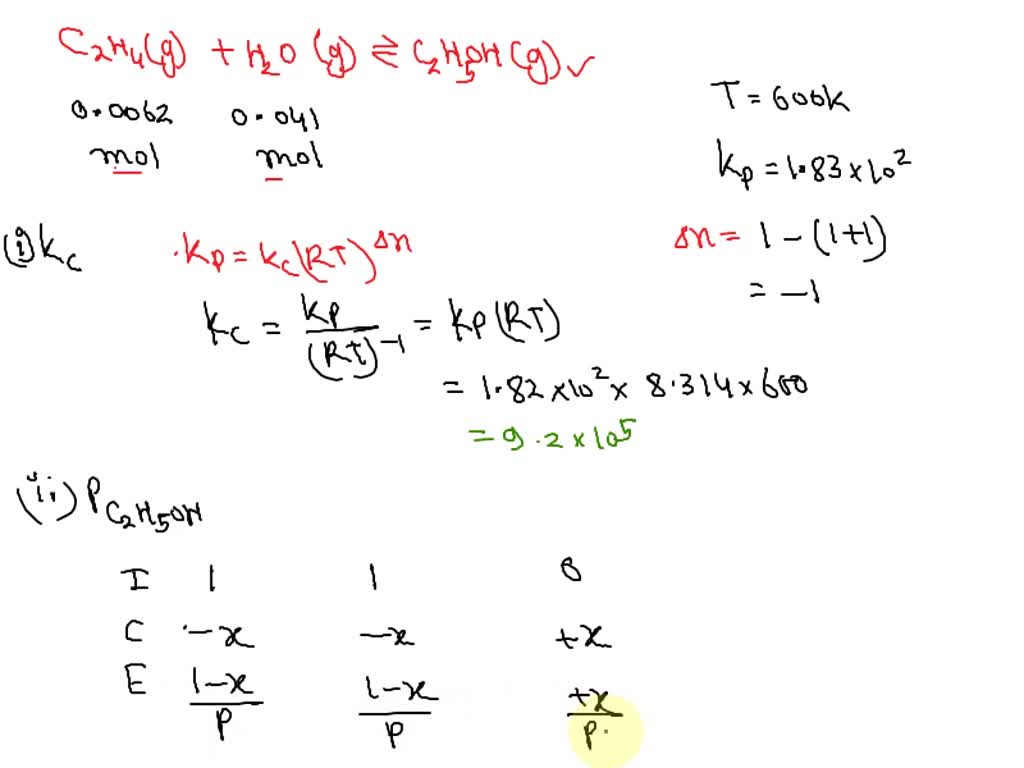 C₂H₄(g) + H₂O (g) ⇌ C₂H₅OH(g) ✓
0.0062 0.041
mol mol
T = 600K
Kp = 1.83 × 10²
Δn = 1 – (1+1)
= –1
(i) Kc
.Kp = Kc(RT)^Δn
Kc = Kp/(RT)⁻¹ = Kp(RT)
= 1.82 × 10² × 8.314 × 600
= 9.2 × 10⁵
(ii) P C₂H₅OH
I 1 1 0
C -x -x +x
E (1-x)/P (1-x)/P +x/P.